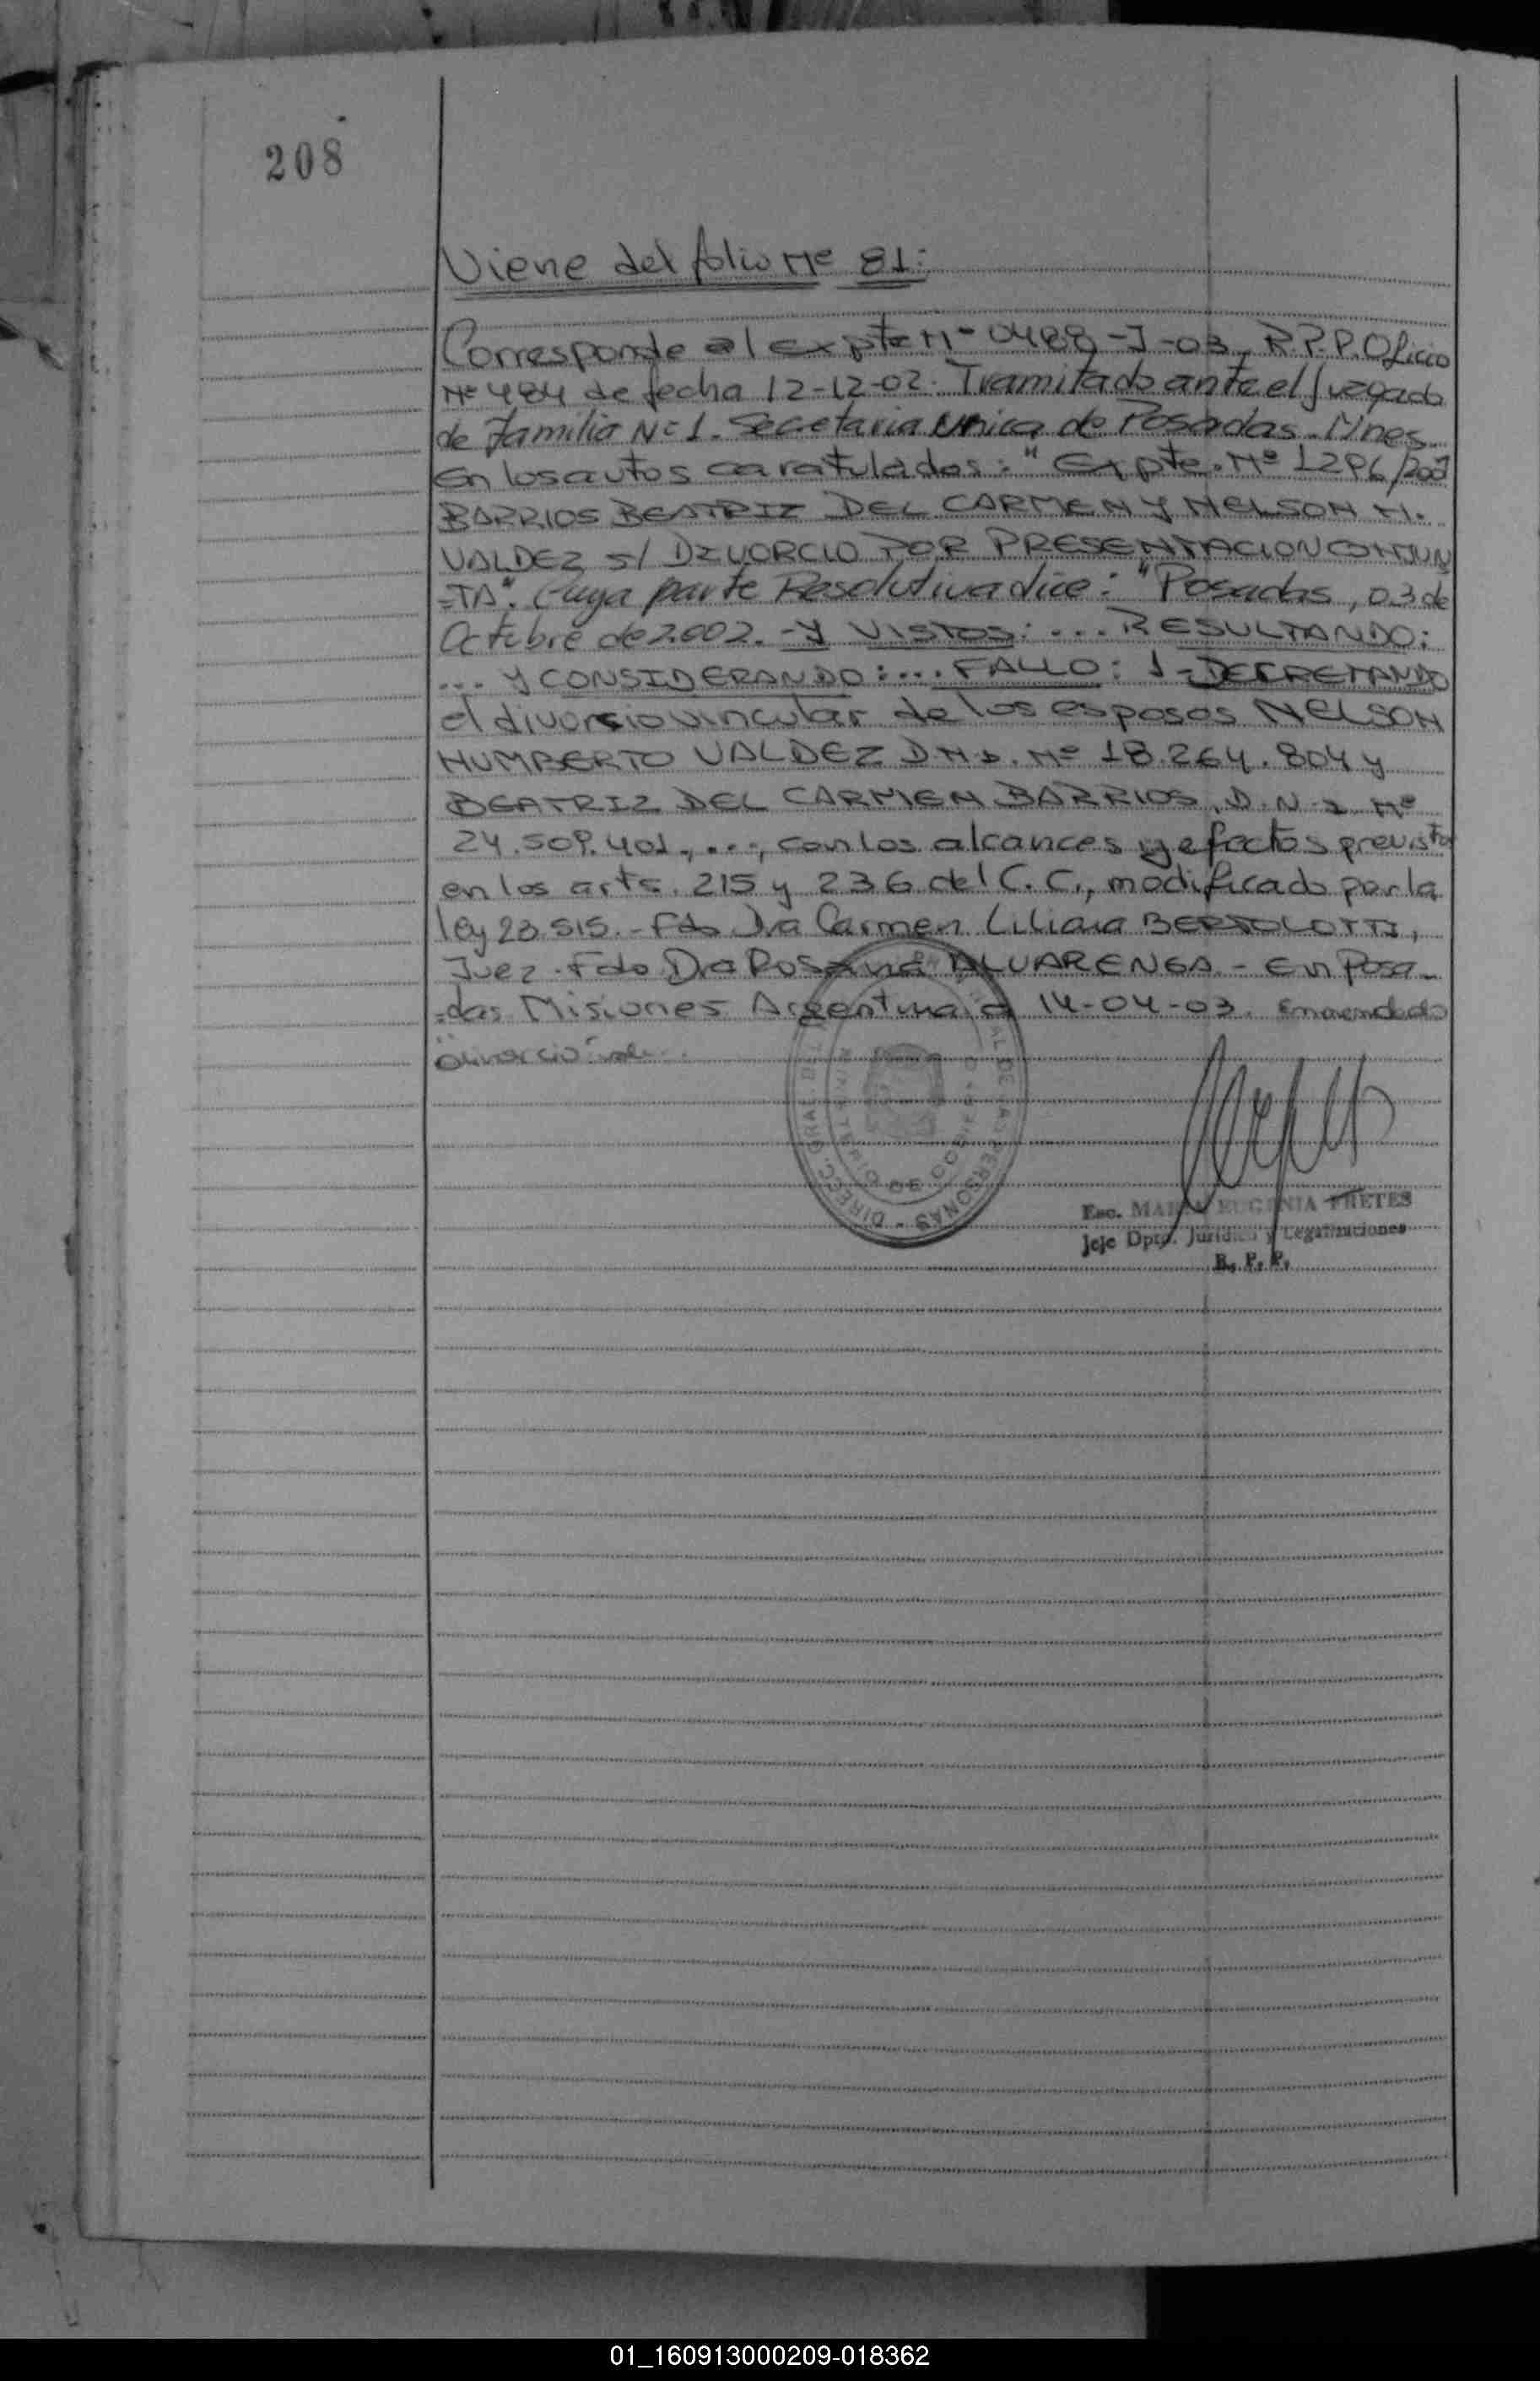 208
Viene del folio Nº 81:
Corresponde al expte Nº 0488-J-03, R.P.P. Oficio
Nº 484 de fecha 12-12-02. Tramitado ante el Juzgado
de familia Nº 1. Secretaria unica de Posadas-Mnes.
En los autos caratulados: "Expte. Nº 1296/2001
BARRIOS BEATRIZ DEL CARMEN Y NELSON H.
VALDEZ S/ DIVORCIO POR PRESENTACION CONJUN
=TA". Cuya parte Resolutiva dice: "Posadas, 03 de
Octubre de 2.002.- Y VISTOS: ... RESULTANDO:
... Y CONSIDERANDO: ... FALLO: 1-DECRETANDO
el divorcio vincular de los esposos NELSON
HUMBERTO VALDEZ D.N.I. Nº 18.264.804 y
BEATRIZ DEL CARMEN BARRIOS, D.N.I. Nº
24.509.401, ..., con los alcances y efectos previstos
en los arts. 215 y 236 del C.C., modificado por la
ley 23.515.- Fdo Dra Carmen Liliana BERTOLOTTI,
Juez. Fdo Dra Rosana ALVARENGA - En Posa-
=das Misiones Argentina a 14-04-03. Enmendado
"divorcio" vale.
DIRECC. GRAL. DE PERSONAS
Esc. MARIA EUGENIA FRETES
Jefe Dpto. Jurídico y Legalizaciones
R. P. P.
01_160913000209-018362